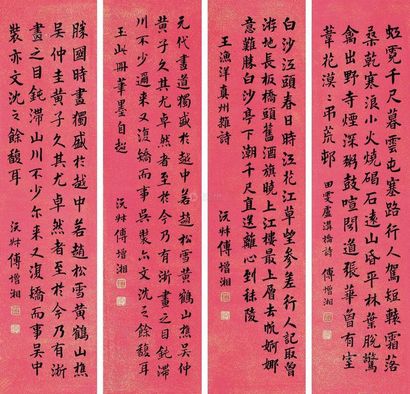 虹霓千尺暮雲寒路行人駕短轅霜落
桑乾寒浪小火燒碣石遠山昏平林葉脫驚
禽出野寺煙深粥鼓喧聞道張華曾有室
葦花漠漠弔荒邨
田雯盧溝橋詩 傅增湘
白沙江頭春日時江花江草望參差行人記取曾
游地長板橋頭舊酒旗曉上江樓最上層去帆婀娜
意難勝白沙亭下潮千尺直送離心到秣陵
王漁洋真州雜詩
沅叔傅增湘
元代畫道獨盛於越中若趙松雪黃鶴山樵吳仲
黃子久其尤卓然者至於今乃有浙畫之目鈍滯山
川不少遁來又復矯而事吳裝亦文沈之餘馥耳
玉山冊筆墨自超
沅叔傅增湘
勝國時畫獨盛於越中若趙松雪黃鶴山樵
吳仲圭黃子久其尤卓然者至於今乃有浙
畫之目鈍滯山川不少尒來又復矯而事吳中
裝亦文沈之餘馥耳
沅叔傅增湘